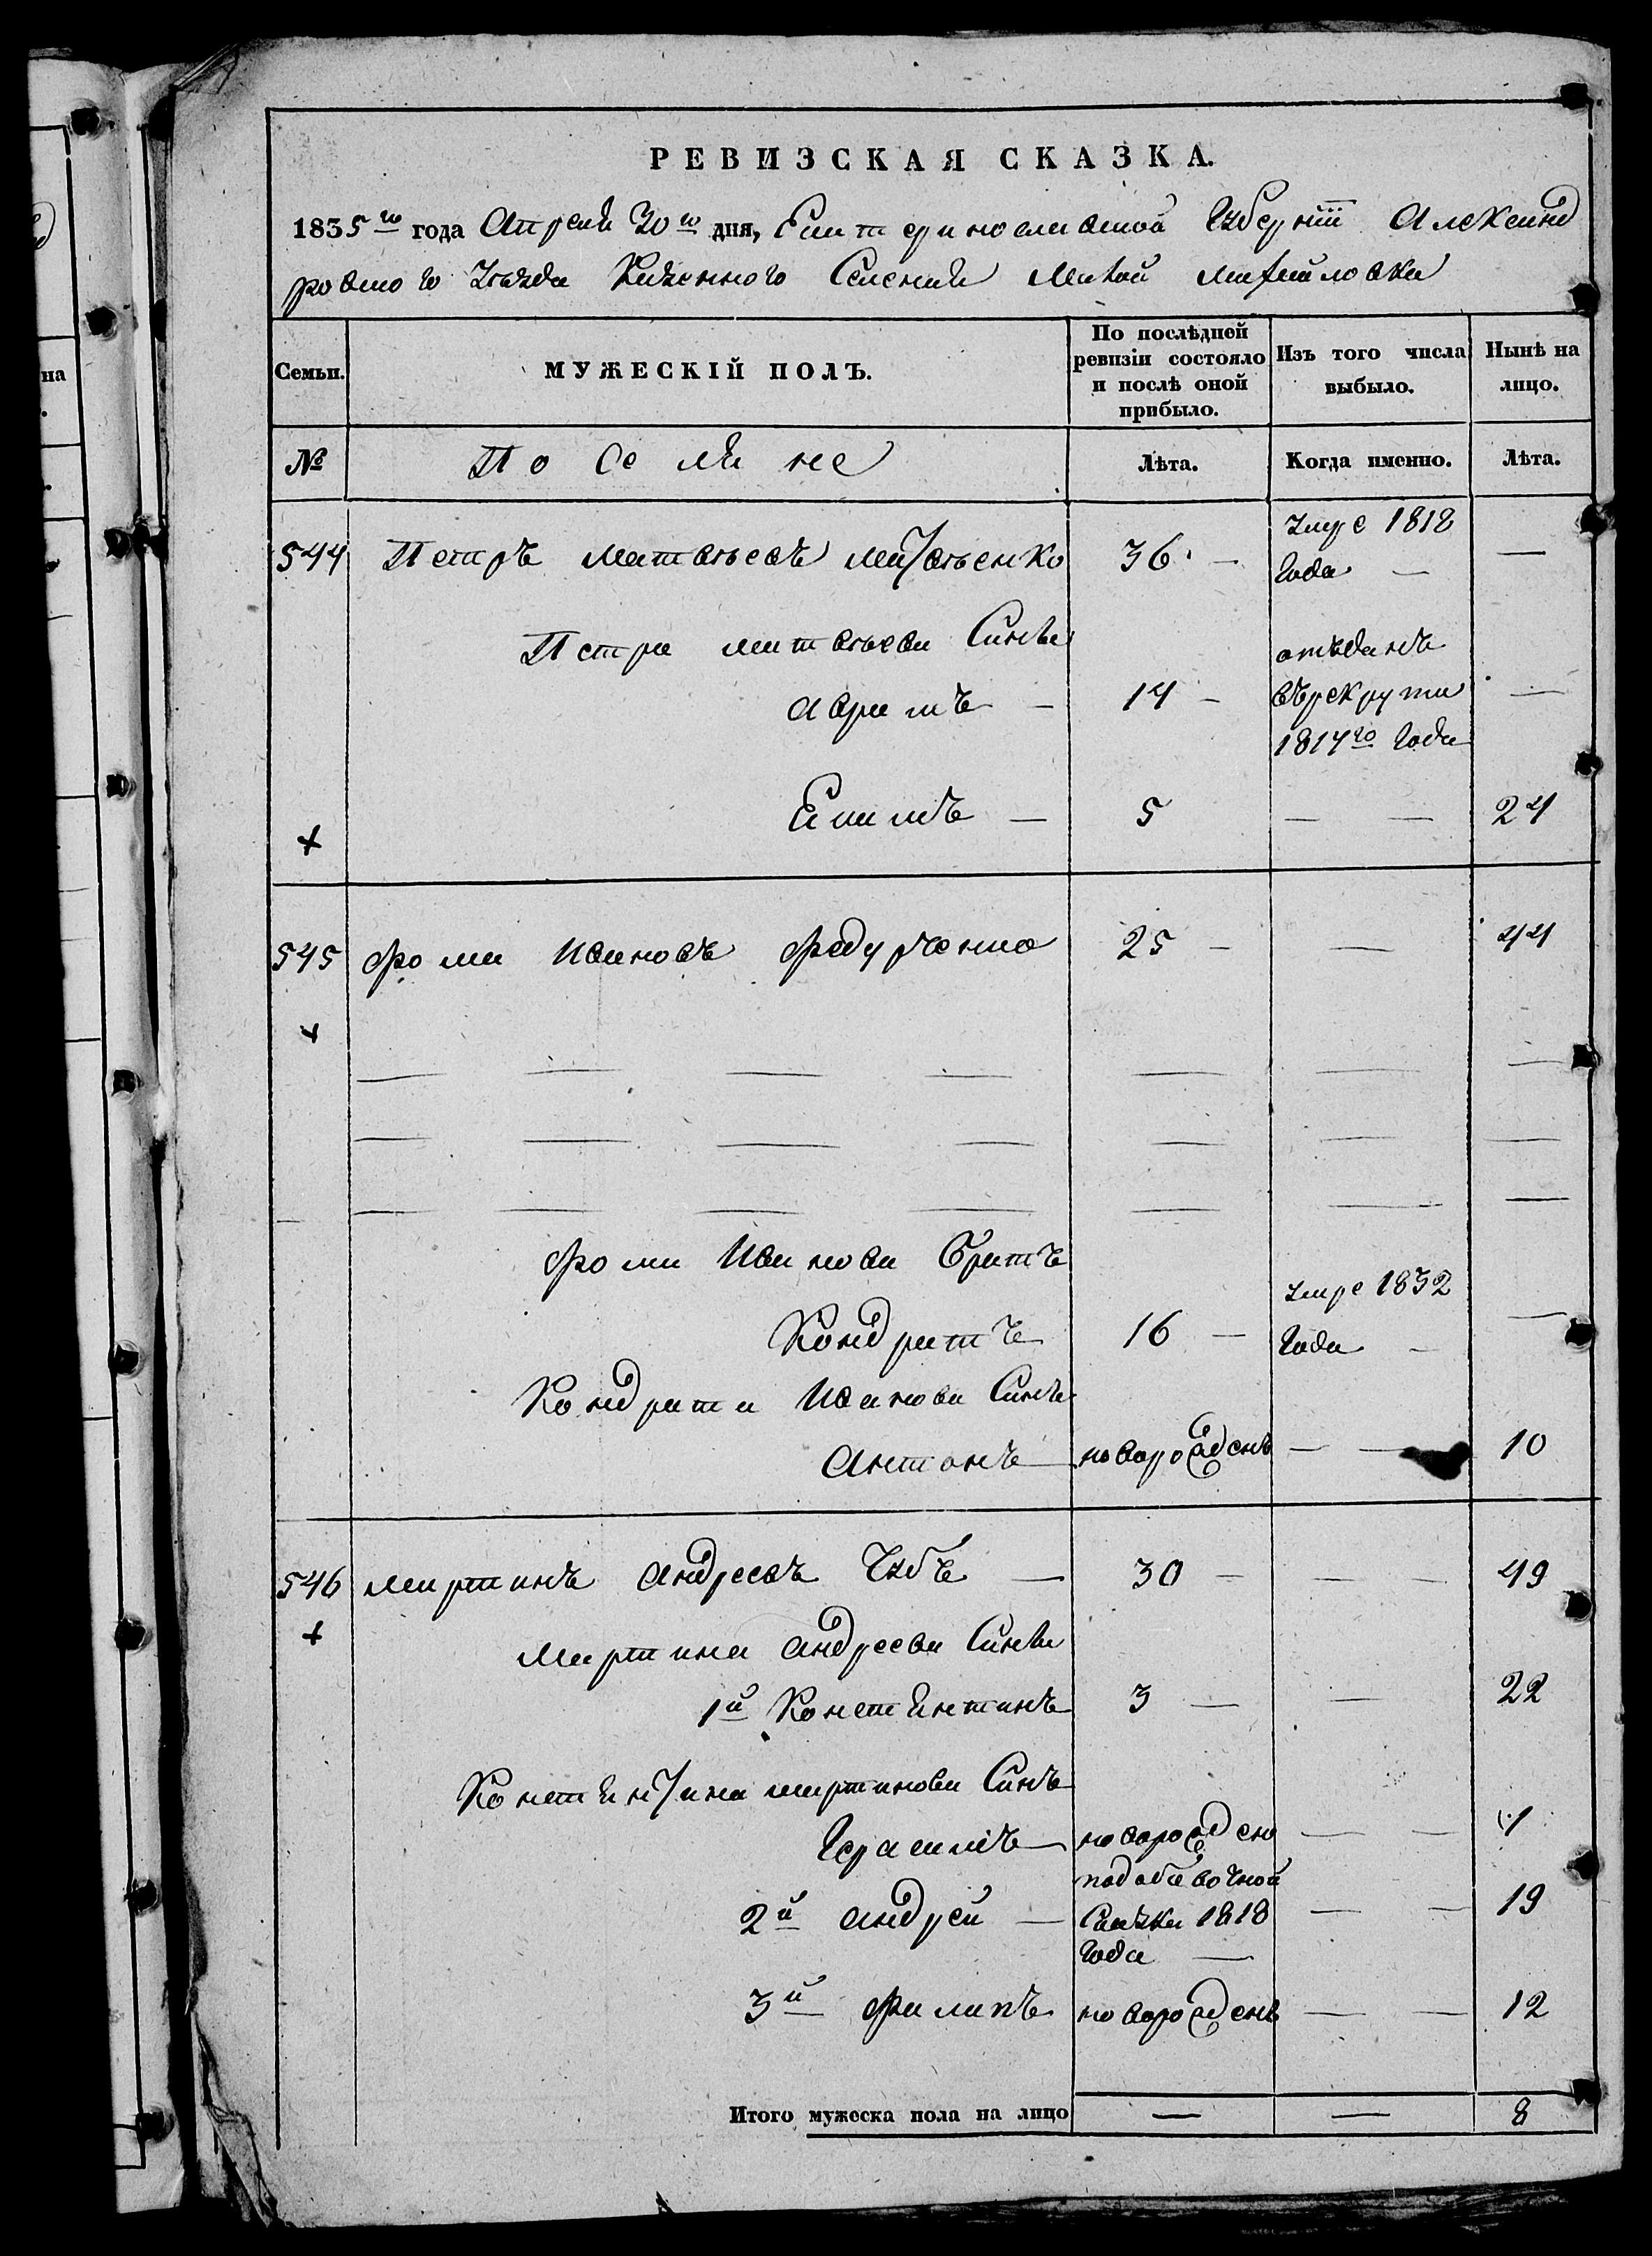 на
РЕВИЗСКАЯ СКАЗКА.
1835го года Апреля 30го дня, Екатеринославской Губерніи Александ
ровского Уезда Казенного Селения Малой Михайловки
Семьи. МУЖЕСКІЙ ПОЛЪ. По послѣдней ревизіи состояло и послѣ оной прибыло. Изъ того числа выбыло. Нынѣ на лицо.
№ Лѣта. Когда именно. Лѣта.
544 Петръ Матвѣевъ 36 — умре 1818 года — —
Петра Матвѣева Сынья
Аврамъ — 14 — отъданъ въ рекрути 1814го Года —
Екимъ — 5 — — 24
+
545 Фома Ивановъ Федученко 25 — — 44
+
Фоми Иванова Братъ
Кондратъ 16 — умре 1832 Года — —
Кондрата Иванова Синъ
Антонъ — новорожденъ — — 10
546 Мартинъ Андреевъ Губъ — 30 — — — 49
+
Мартина Андреева Синья
1й Констянтинъ 3 — — 22
Констянтина Мартинова Синъ
Герасимъ — новорождено — — 1
2й Андрей — под обѣвочной Скаски 1818 Года — — — 19
3й Филипъ новорожденъ — — 12
Итого мужеска пола на лицо — — 8